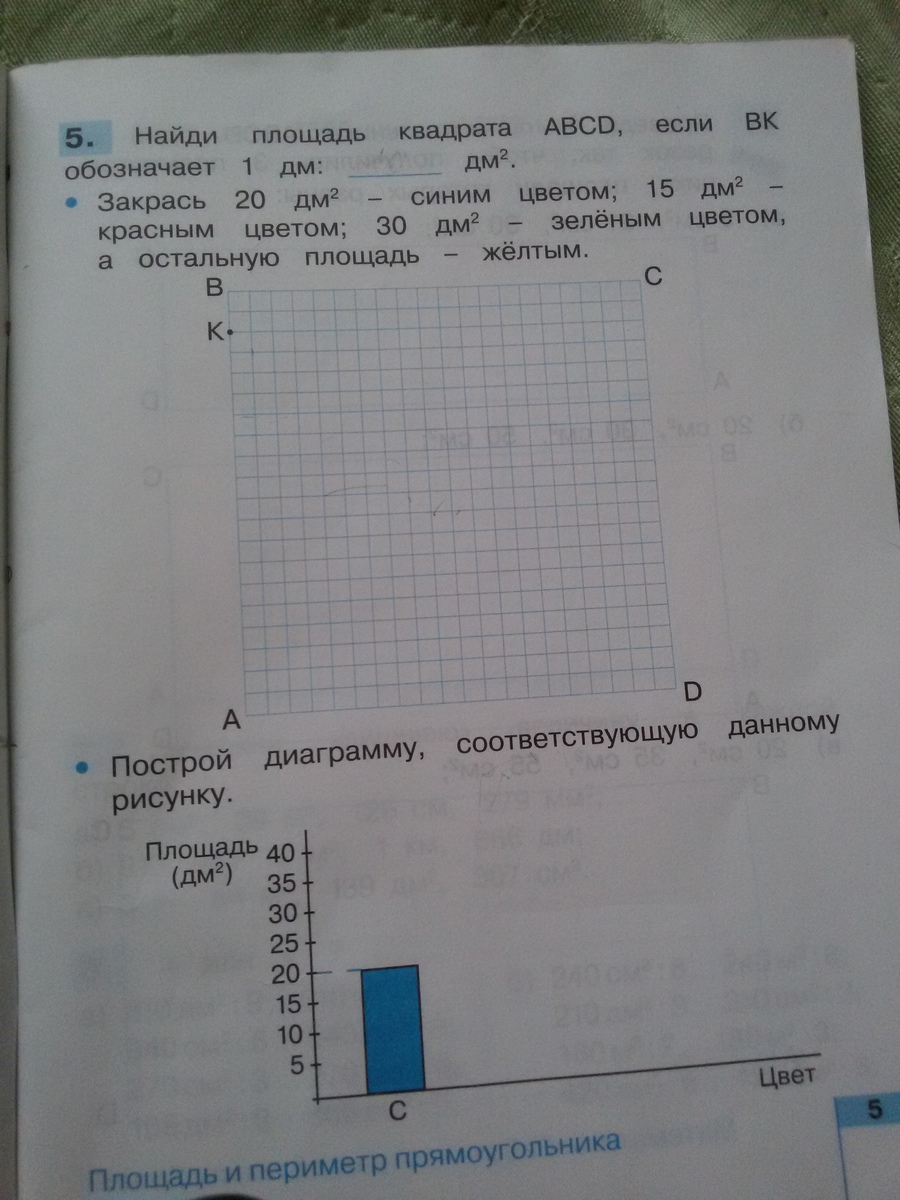 5. Найди площадь квадрата ABCD, если BK
обозначает 1 дм: ______ дм².
• Закрась 20 дм² – синим цветом; 15 дм² –
красным цветом; 30 дм² – зелёным цветом,
а остальную площадь – жёлтым.
B C
K•
A D
• Построй диаграмму, соответствующую данному
рисунку.
Площадь
(дм²)
40
35
30
25
20
15
10
5
С
Цвет
5
Площадь и периметр прямоугольника